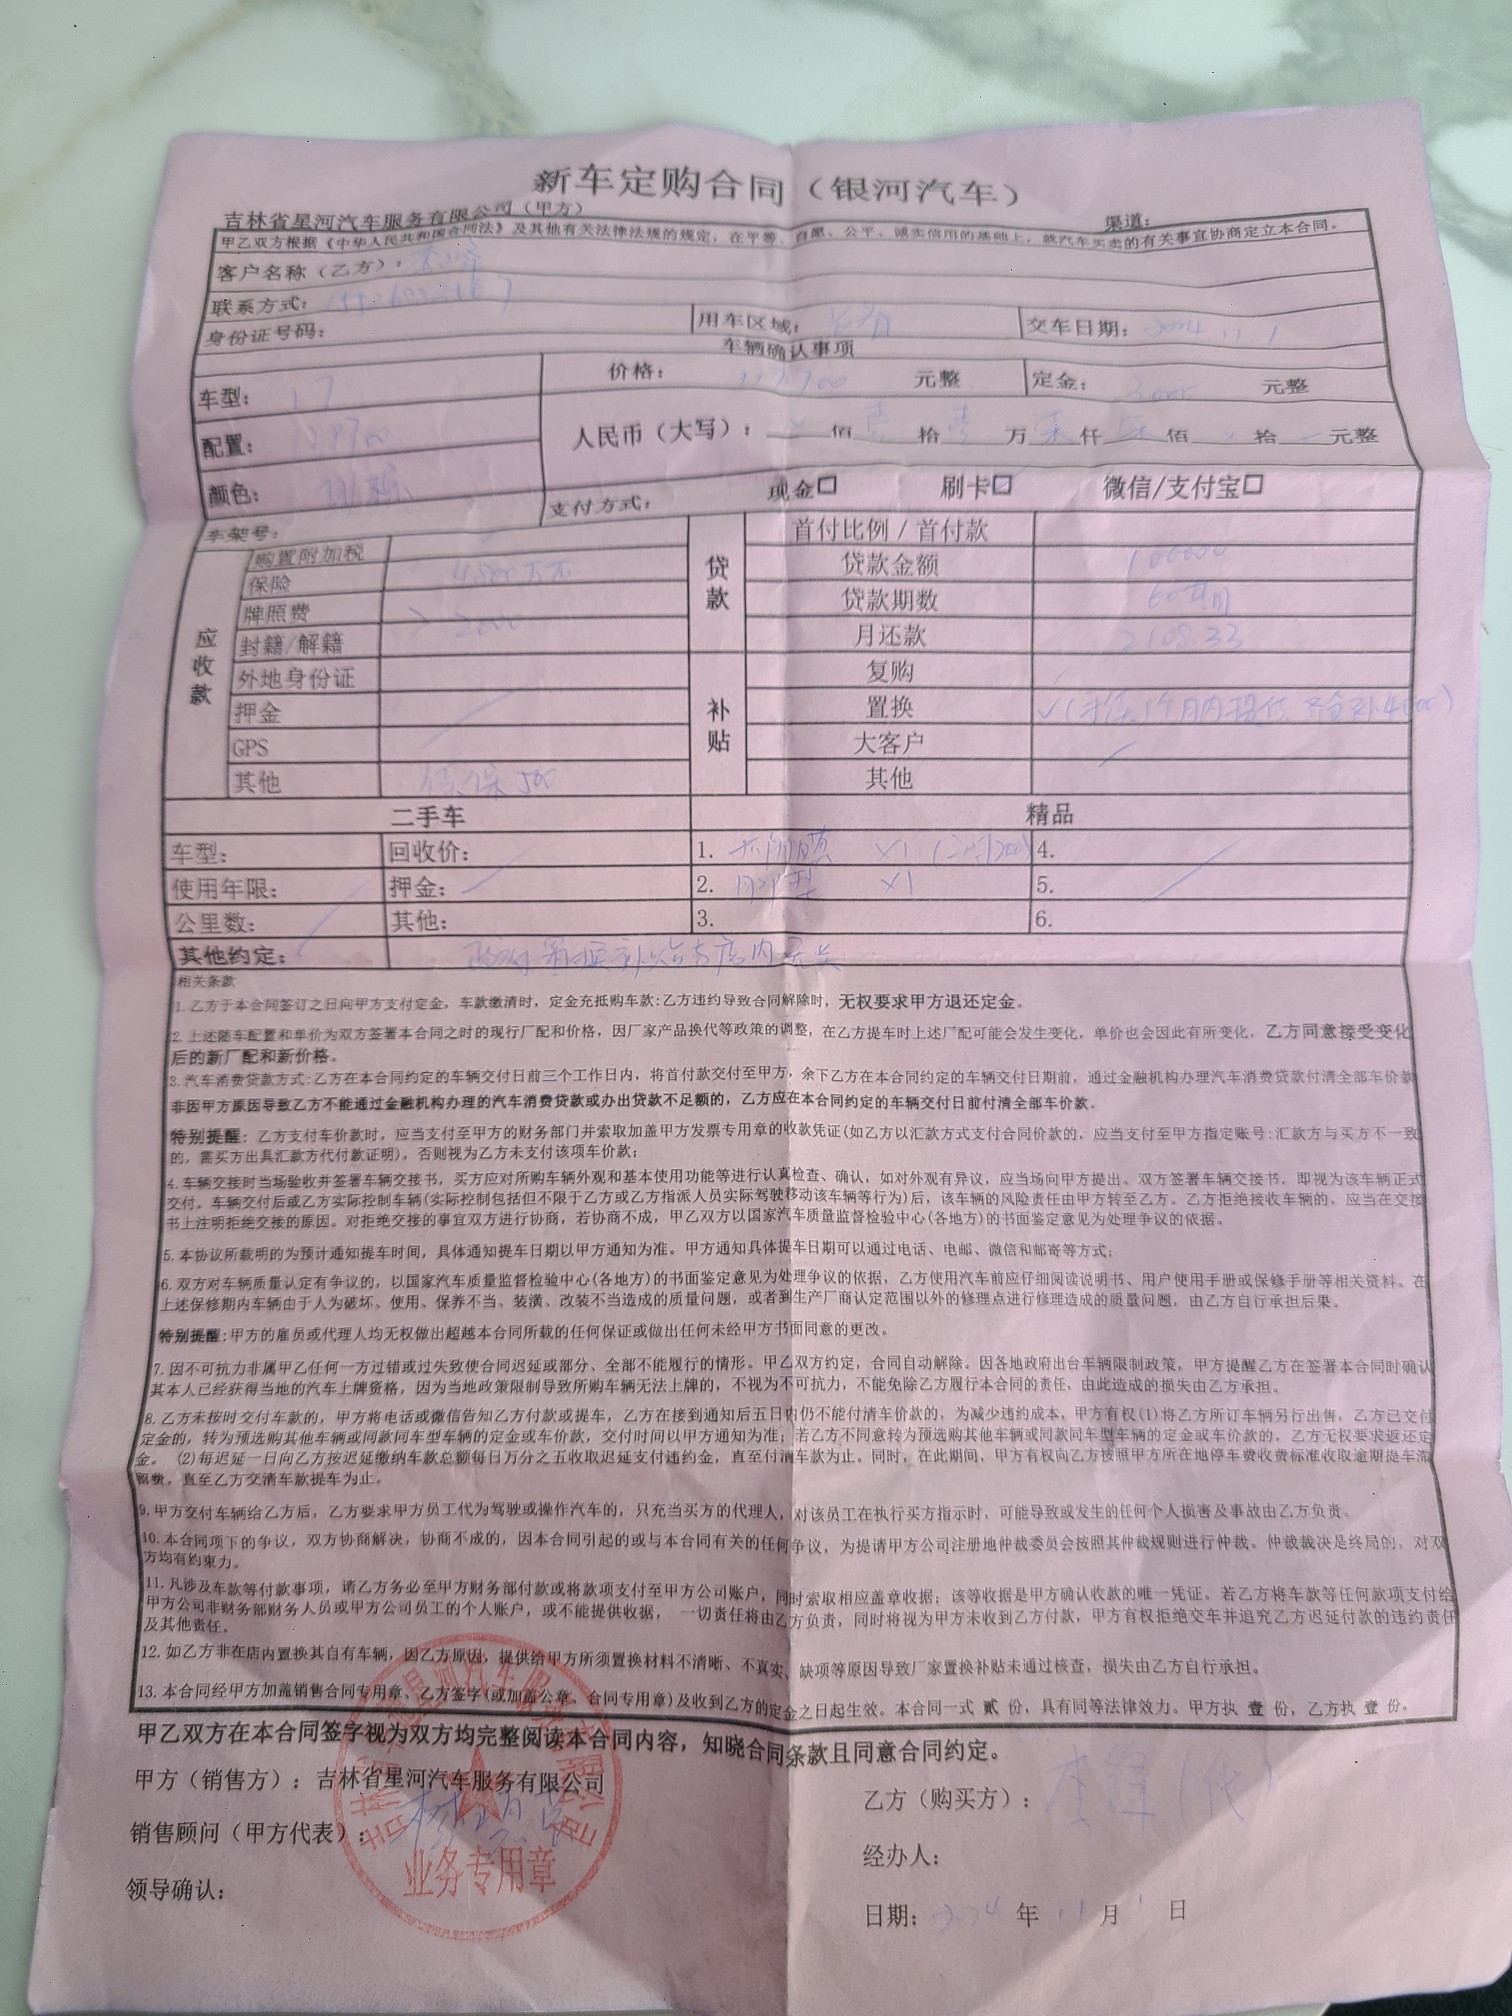 新车定购合同（银河汽车）
吉林省星河汽车服务有限公司（甲方） 渠道：
甲乙双方根据《中华人民共和国合同法》及其他有关法律法规的规定，在平等、自愿、公平、诚实信用的基础上，就汽车买卖的有关事宜协商定立本合同。
客户名称（乙方）：
联系方式：
身份证号码： 用车区域： 交车日期：2024.11.1
车辆确认事项
车型：L7 价格：117700 元整 定金：3000 元整
配置： 人民币（大写）： 佰 壹 拾 壹 万 柒 仟 柒 佰 拾 元整
颜色： 支付方式： 现金□ 刷卡☑ 微信/支付宝□
车架号：
应收款 购置附加税 贷款 首付比例 / 首付款
保险 贷款金额 100000
牌照费 2000 贷款期数 60个月
封籍/解籍 月还款 2108.33
外地身份证 补贴 复购
押金 置换
GPS 大客户
其他 500 其他
二手车 精品
车型： 回收价： 1. X1 4.
使用年限： 押金： 2. X1 5.
公里数： 其他： 3. 6.
其他约定：
相关条款
1.乙方于本合同签订之日向甲方支付定金，车款缴清时，定金充抵购车款:乙方违约导致合同解除时，无权要求甲方退还定金。
2.上述随车配置和单价为双方签署本合同之时的现行厂配和价格，因厂家产品换代等政策的调整，在乙方提车时上述厂配可能会发生变化，单价也会因此有所变化，乙方同意接受变化
后的新厂配和新价格。
3.汽车消费贷款方式:乙方在本合同约定的车辆交付日前三个工作日内，将首付款交付至甲方，余下乙方在本合同约定的车辆交付日期前，通过金融机构办理汽车消费贷款付清全部车价款
非因甲方原因导致乙方不能通过金融机构办理的汽车消费贷款或办出贷款不足额的，乙方应在本合同约定的车辆交付日前付清全部车价款。
特别提醒：乙方支付车价款时，应当支付至甲方的财务部门并索取加盖甲方发票专用章的收款凭证(如乙方以汇款方式支付合同价款的，应当支付至甲方指定账号:汇款方与买方不一致
的，需买方出具汇款方代付款证明)，否则视为乙方未支付该项车价款；
4.车辆交接时当场验收并签署车辆交接书，买方应对所购车辆外观和基本使用功能等进行认真检查、确认，如对外观有异议，应当场向甲方提出。双方签署车辆交接书，即视为该车辆正式
交付。车辆交付后或乙方实际控制车辆(实际控制包括但不限于乙方或乙方指派人员实际驾驶移动该车辆等行为)后，该车辆的风险责任由甲方转至乙方。乙方拒绝接收车辆的，应当在交接
书上注明拒绝交接的原因。对拒绝交接的事宜双方进行协商，若协商不成，甲乙双方以国家汽车质量监督检验中心(各地方)的书面鉴定意见为处理争议的依据。
5.本协议所载明的为预计通知提车时间，具体通知提车日期以甲方通知为准。甲方通知具体提车日期可以通过电话、电邮、微信和邮寄等方式；
6.双方对车辆质量认定有争议的，以国家汽车质量监督检验中心(各地方)的书面鉴定意见为处理争议的依据，乙方使用汽车前应仔细阅读说明书、用户使用手册或保修手册等相关资料。在
上述保修期内车辆由于人为破坏、使用、保养不当、装潢、改装不当造成的质量问题，或者到生产厂商认定范围以外的修理点进行修理造成的质量问题，由乙方自行承担后果。
特别提醒:甲方的雇员或代理人均无权做出超越本合同所载的任何保证或做出任何未经甲方书面同意的更改。
7.因不可抗力非属甲乙任何一方过错或过失致使合同迟延或部分、全部不能履行的情形。甲乙双方约定，合同自动解除。因各地政府出台车辆限制政策，甲方提醒乙方在签署本合同时确认
其本人已经获得当地的汽车上牌资格，因为当地政策限制导致所购车辆无法上牌的，不视为不可抗力，不能免除乙方履行本合同的责任，由此造成的损失由乙方承担。
8.乙方未按时交付车款的，甲方将电话或微信告知乙方付款或提车，乙方在接到通知后五日内仍不能付清车价款的，为减少违约成本，甲方有权(1)将乙方所订车辆另行出售，乙方已交付
定金的，转为预选购其他车辆或同款同车型车辆的定金或车价款，交付时间以甲方通知为准；若乙方不同意转为预选购其他车辆或同款同车型车辆的定金或车价款的，乙方无权要求返还定
金。(2)每迟延一日向乙方按迟延缴纳车款总额每日万分之五收取迟延支付违约金，直至付清车款为止。同时，在此期间，甲方有权向乙方按照甲方所在地停车费收费标准收取逾期提车滞
留费，直至乙方交清车款提车为止。
9.甲方交付车辆给乙方后，乙方要求甲方员工代为驾驶或操作汽车的，只充当买方的代理人，对该员工在执行买方指示时，可能导致或发生的任何个人损害及事故由乙方负责。
10.本合同项下的争议，双方协商解决，协商不成的，因本合同引起的或与本合同有关的任何争议，为提请甲方公司注册地仲裁委员会按照其仲裁规则进行仲裁。仲裁裁决是终局的，对双
方均有约束力。
11.凡涉及车款等付款事项，请乙方务必至甲方财务部付款或将款项支付至甲方公司账户，同时索取相应盖章收据；该等收据是甲方确认收款的唯一凭证。若乙方将车款等任何款项支付给
甲方公司非财务部财务人员或甲方公司员工的个人账户，或不能提供收据， 一切责任将由乙方负责，同时将视为甲方未收到乙方付款，甲方有权拒绝交车并追究乙方迟延付款的违约责任
及其他责任。
12.如乙方非在店内置换其自有车辆，因乙方原因，提供给甲方所须置换材料不清晰、不真实、缺项等原因导致厂家置换补贴未通过核查，损失由乙方自行承担。
13.本合同经甲方加盖销售合同专用章、乙方签字(或加盖公章、合同专用章)及收到乙方的定金之日起生效。本合同一式 贰 份，具有同等法律效力。甲方执 壹 份，乙方执 壹 份。
甲乙双方在本合同签字视为双方均完整阅读本合同内容，知晓合同条款且同意合同约定。
甲方（销售方）：吉林省星河汽车服务有限公司
乙方（购买方）：
销售顾问（甲方代表）：
经办人：
领导确认：
日期：2024 年 11 月 1 日
吉林省星河汽车服务有限公司
业务专用章